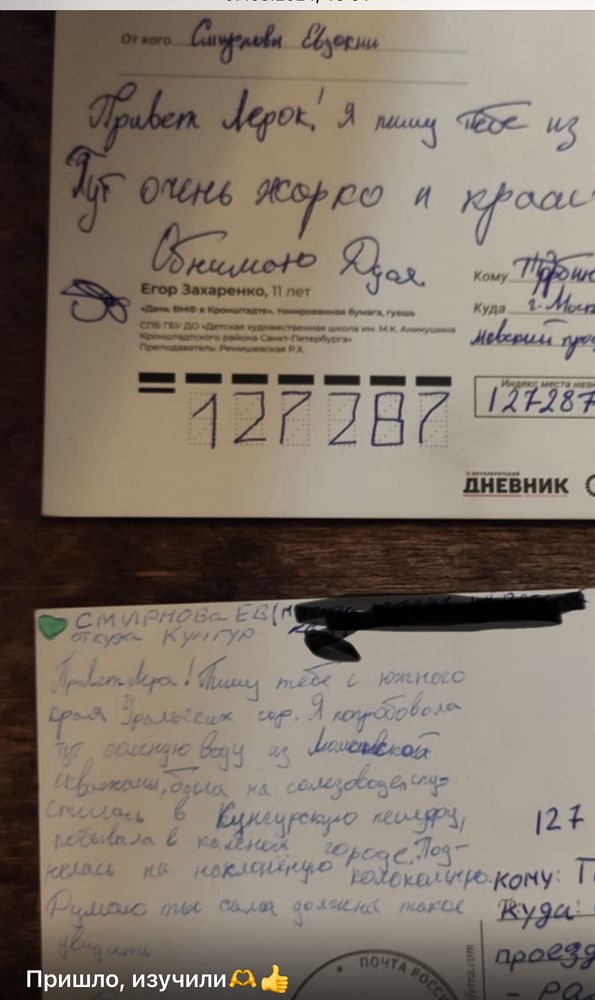 От кого Смирновы Евдокии
Привет Лерок! Я пишу тебе из
Тут очень жарко и краси
Обнимаю Дуся.
Егор Захаренко, 11 лет
«День ВМФ в Кронштадте», тонированная бумага, гуашь
СПБ ГБУ ДО «Детская художественная школа им. М.К. Аникушина
Кронштадтского района Санкт-Петербурга»
Преподаватель: Ремишевская Р.Х.
Кому
Куда г. Мос
Индекс места назн
127287
127287
ПЕТЕРБУРГСКИЙ
ДНЕВНИК
СМИРНОВА ЕВ
откуда КУНГУР
Привет Лера! Пишу тебе с южного
края Уральских гор. Я попробовола
тут солёную воду из
скважины, была на солезаводе, спу-
стилась в Кунгурскую пещеру,
побывала в каменом городе. Под-
нелась на наклонёную колокольню.
Думаю ты сама должна такое
увидеть
127
кому: П
куда:
проезд
ПОЧТА РОССИ
ferra.com
Пришло, изучили🫶👍